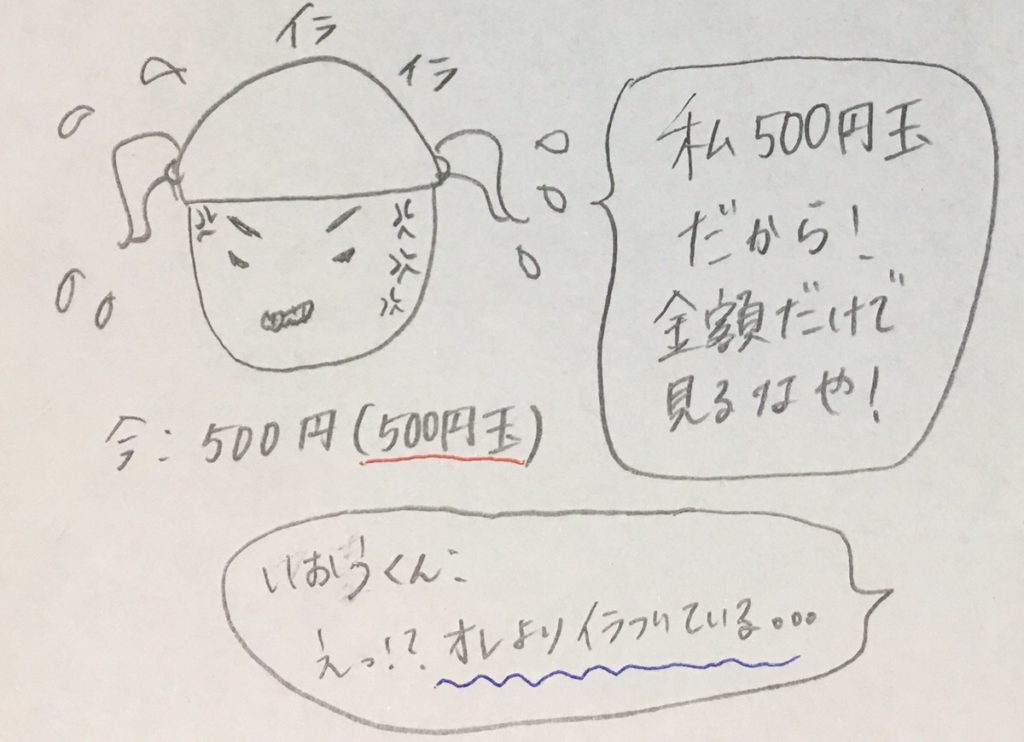 イラ
イラ
私500円玉
だから!
金額だけで
見るなや!
今:500円(500円玉)
いおうくん:
えっ!?オレよりイラついている。。。